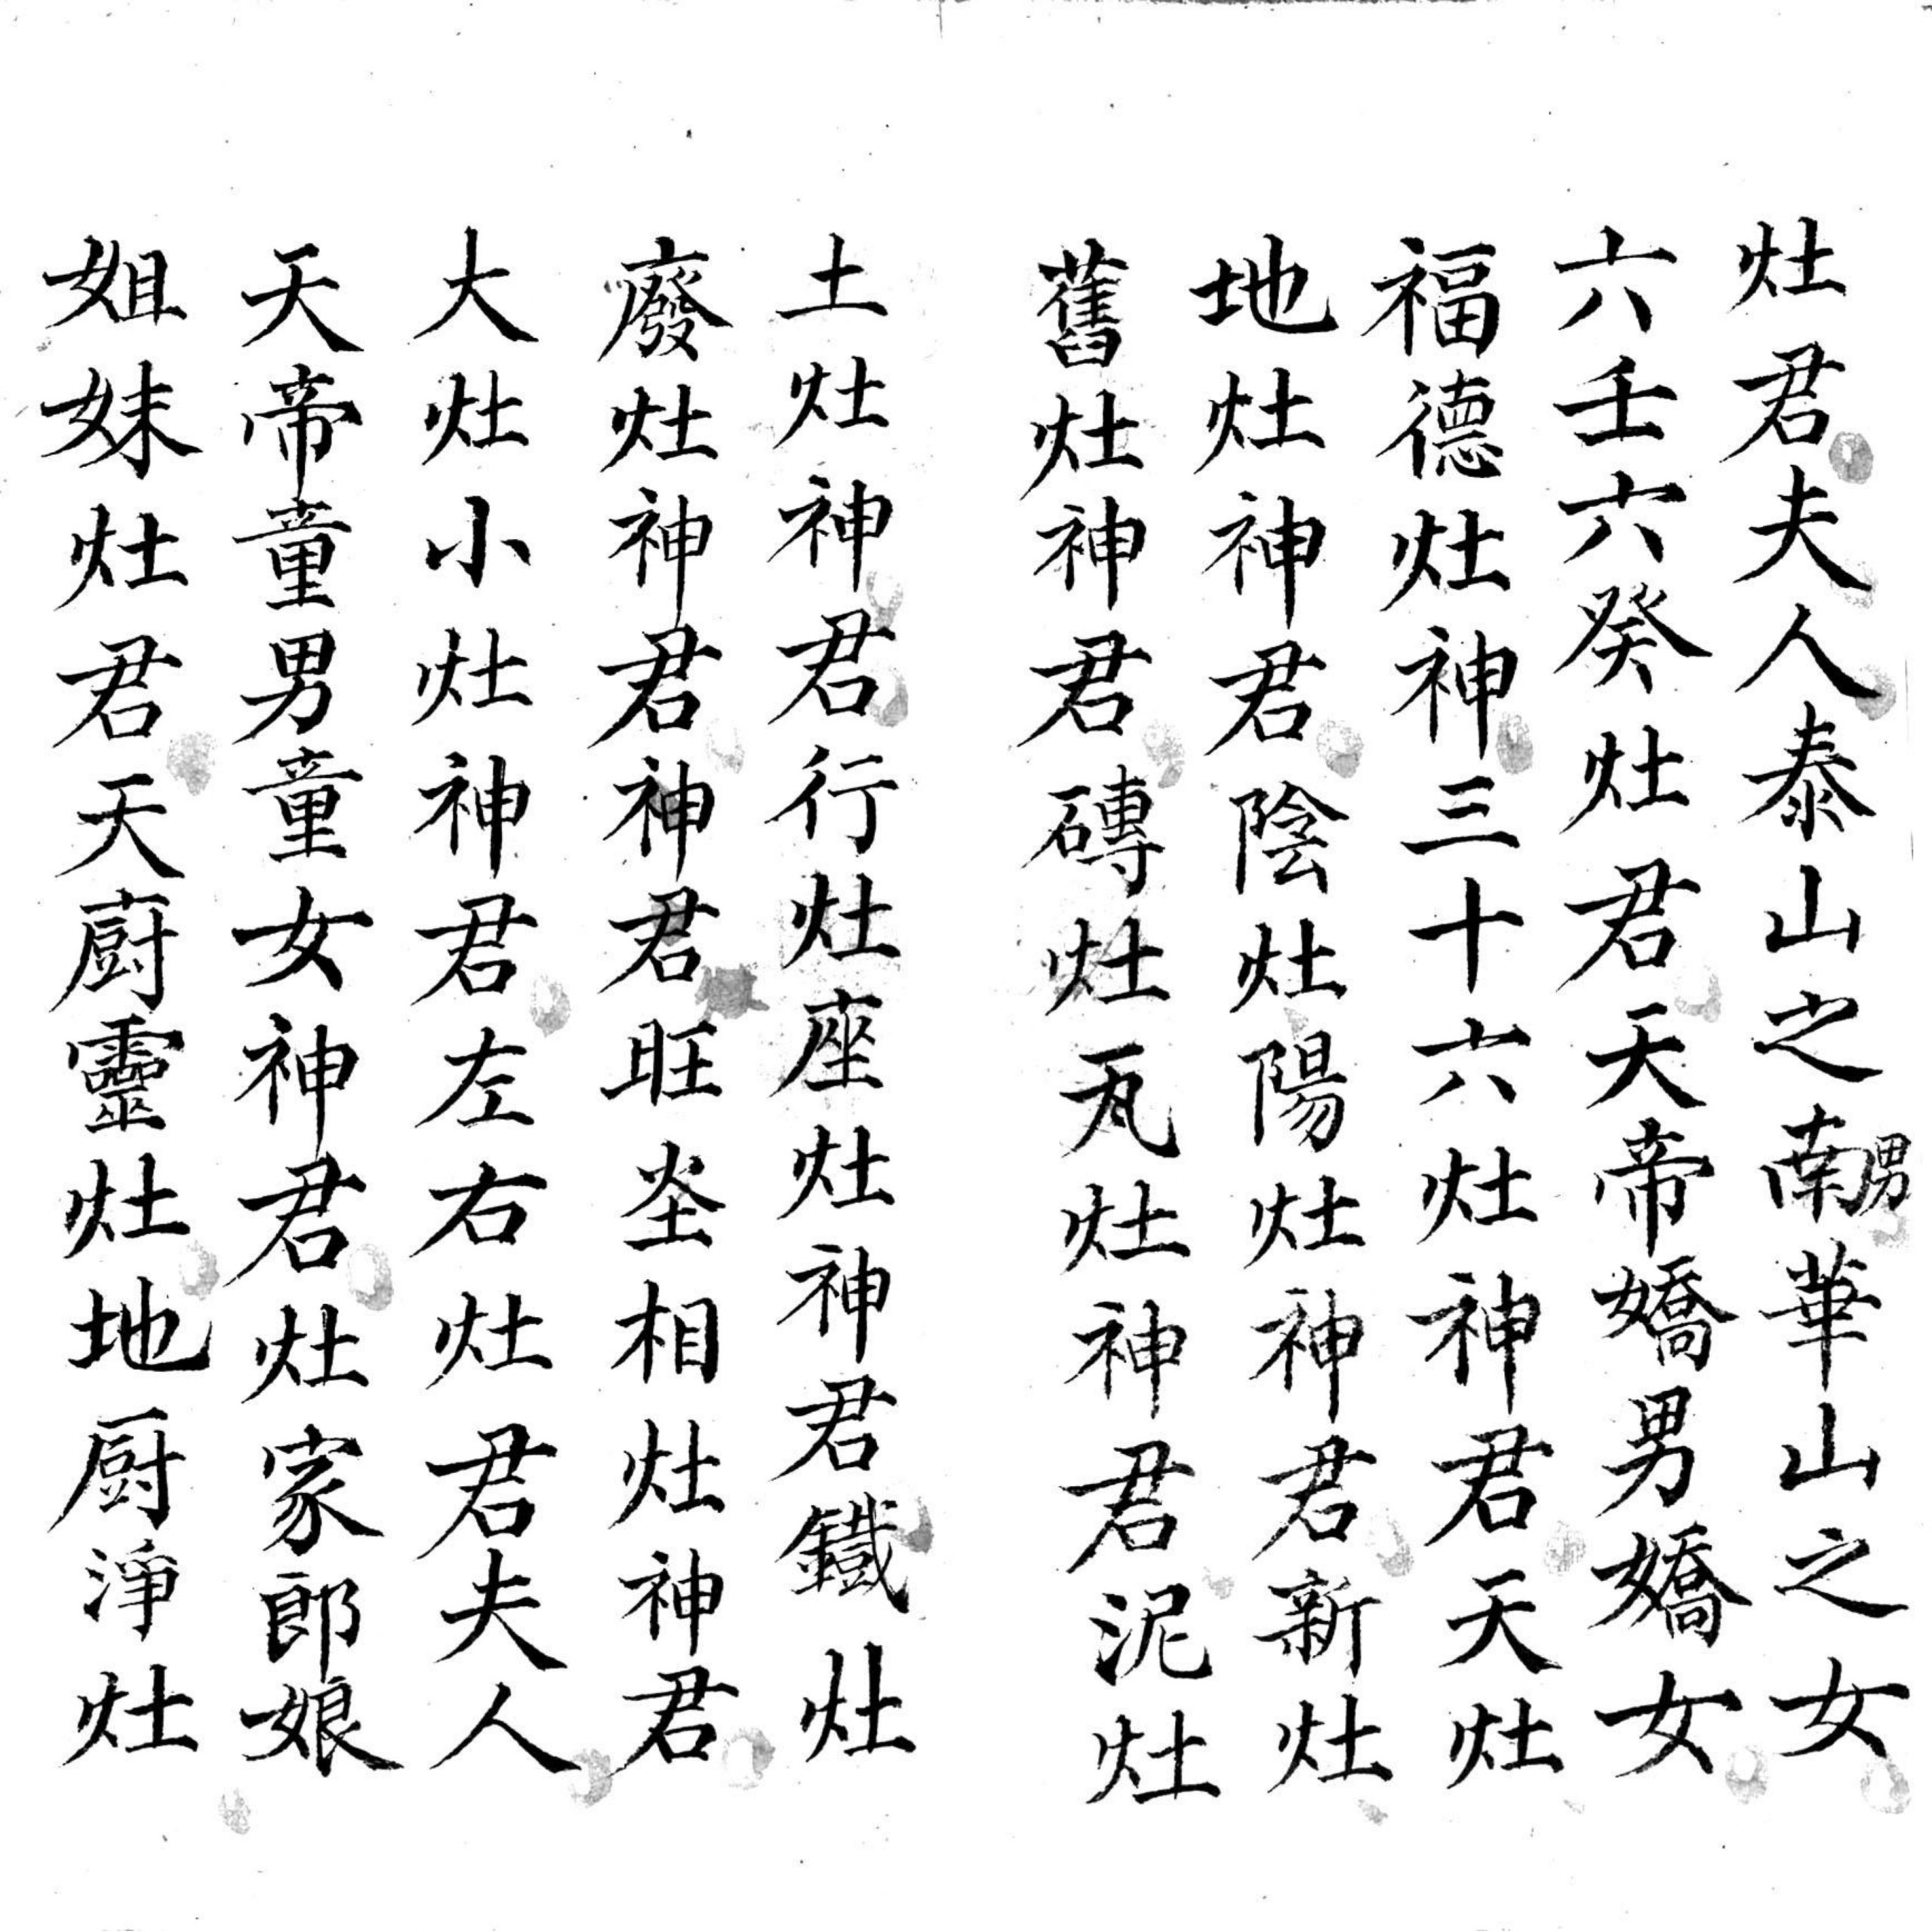 灶君夫人泰山之南男華山之女
六壬六癸灶君天帝嬌男嬌女
福德灶神三十六灶神君天灶
地灶神君陰灶陽灶神君新灶
舊灶神君磚灶瓦灶神君泥灶
土灶神君行灶座灶神君鐵灶
廢灶神君神君旺灶相灶神君
大灶小灶神君左右灶君夫人
天帝童男童女神君灶家郎娘
姐妹灶君天廚靈灶地厨淨灶